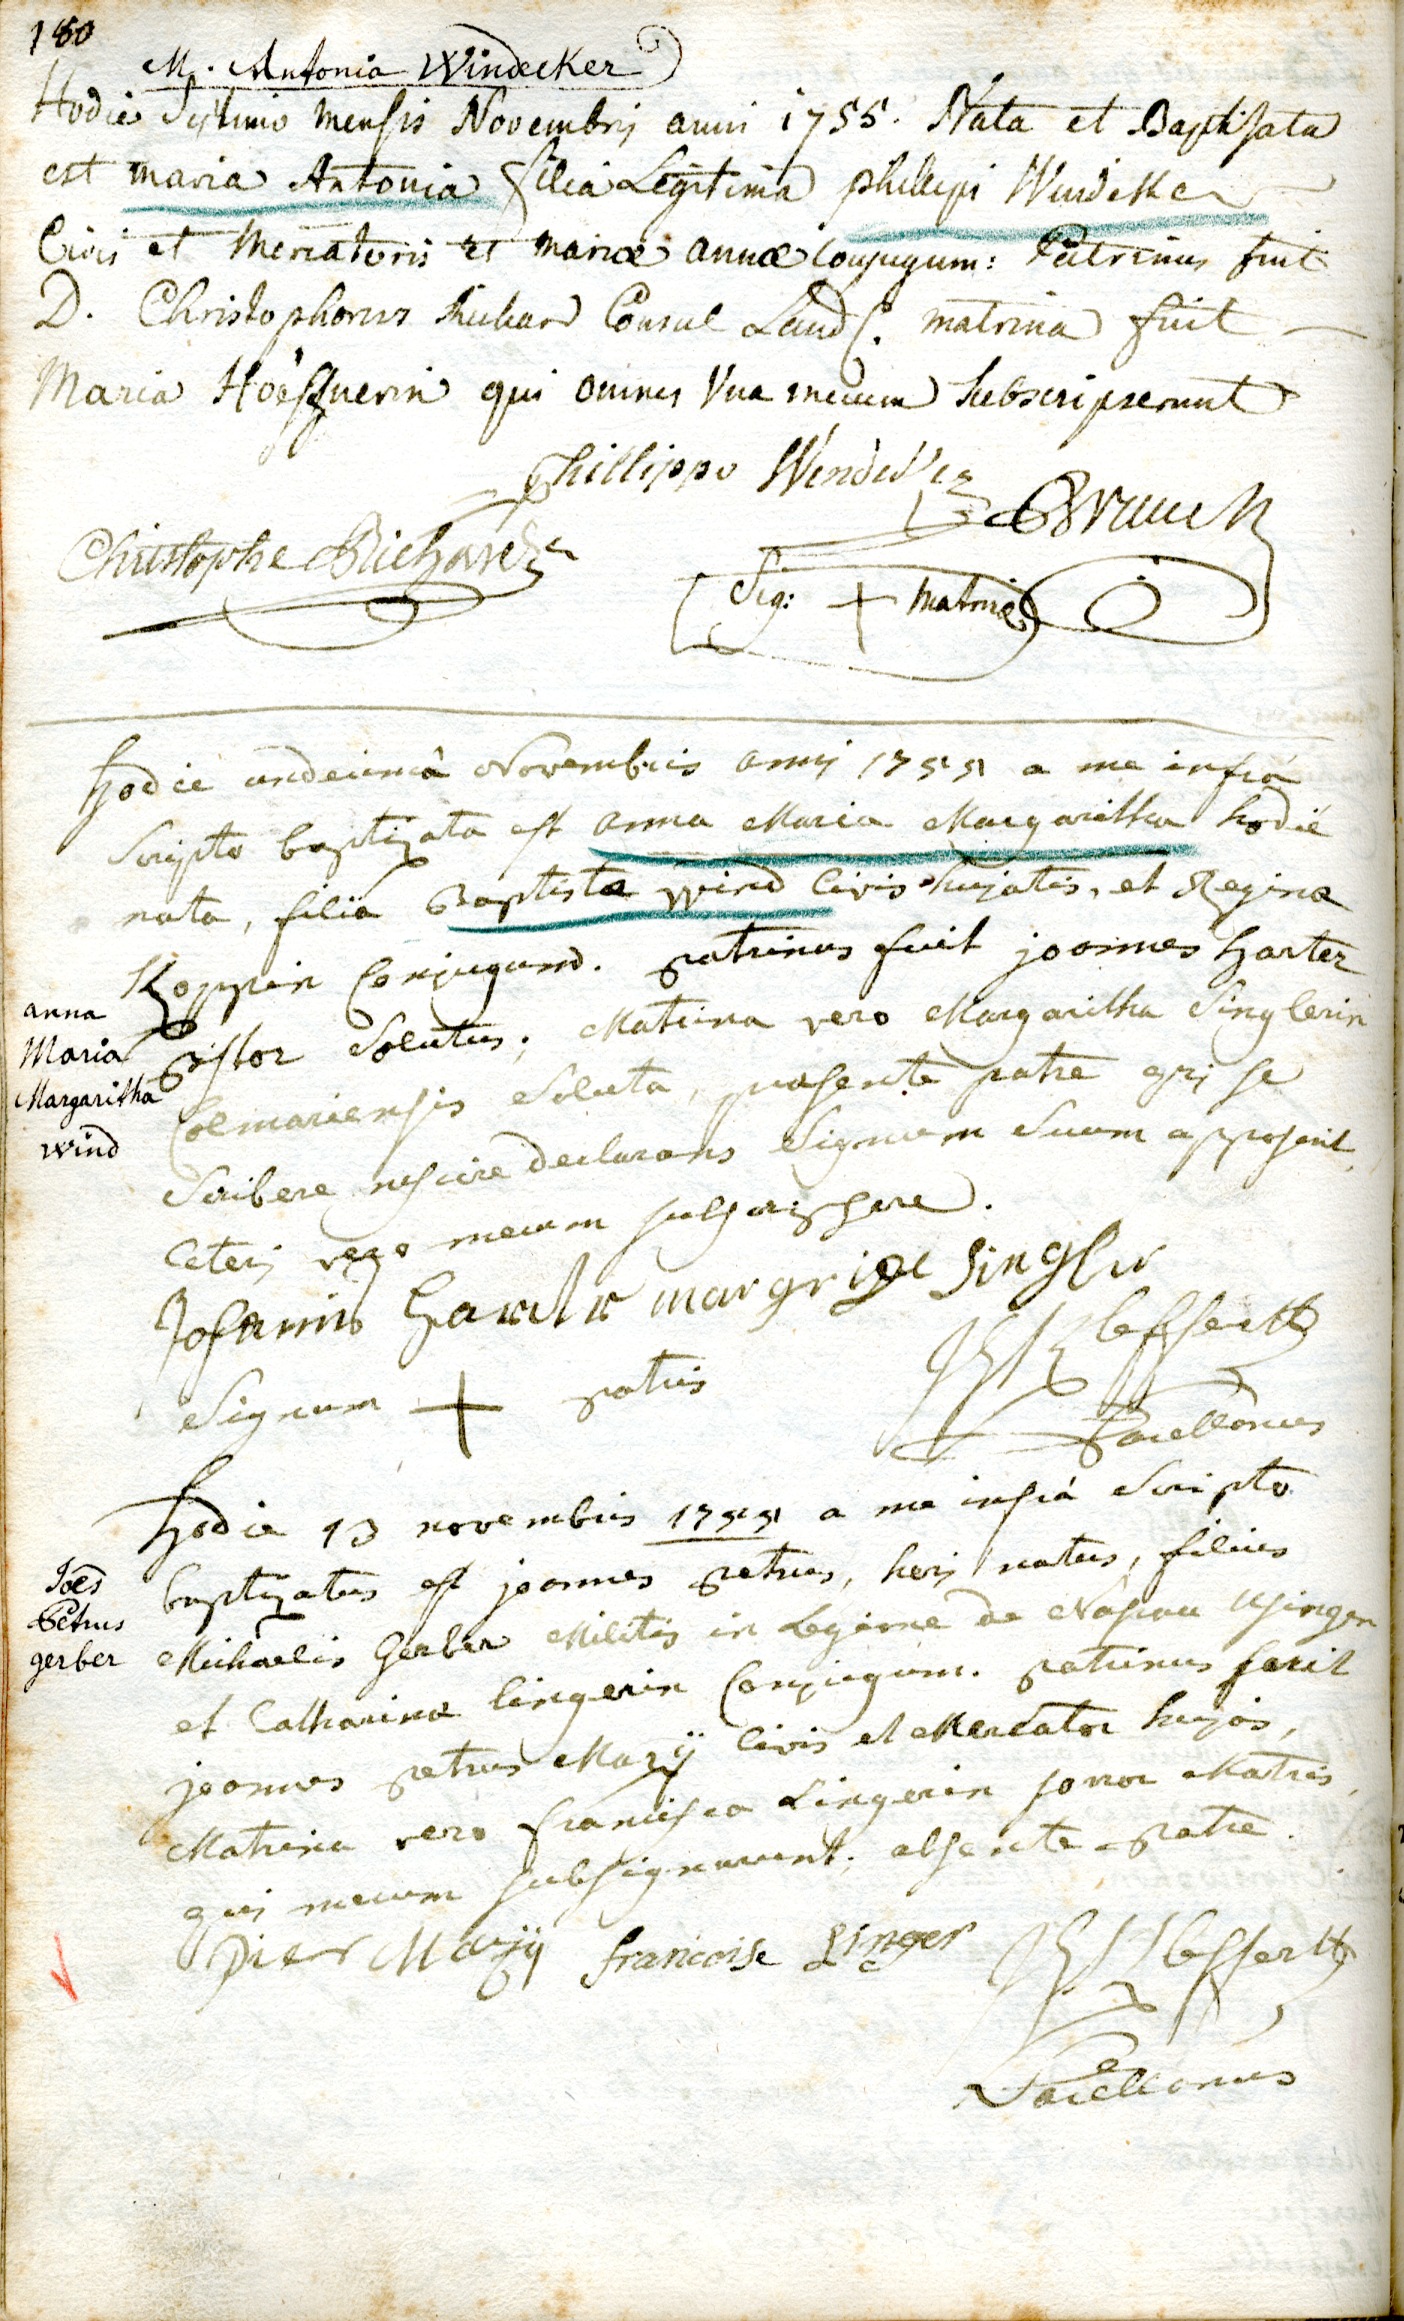 180
M. Antonia Windecker
Hodie Septimo mensis Novembris anni 1755. Nata et Baptisata
est maria Antonia filia Legitima phillipi Windeker
Civis et Mercatoris et mariæ annæ Conjugum: Patrinus fuit
D. Christophorus Richard Consul Land. matrina fuit
Maria qui omnes Una mecum subscripserunt
Phillippo Windecker
Christophe Richard
Sig: + matrinæ
hodie undecimâ Novembris anni 1755 a me infrá
Scripto baptizata est anna Maria Margaritha hodie
nata, filia Baptistæ Wind Civis hujatis, et Reginæ
Koppin Conjugum. patrinus fuit joannes harter
pistor Solutus; Matrina vero Margaritha Singlerin
Colmariensis Soluta, præsente patre qui se
Scribere nescire declarans Signum Suum apposuit,
Ceteri vero mecum subscripsere.
anna
Maria
Margaritha
wind
Johannes harter margride Singler
Signum + patris
Sacellanus
hodie 13 novembris 1755 a me infrá Scripto
baptizatus est joannes petrus, heri natus, filius
Michaelis Gerber Militis in Legione de Nassau Usingen
et Catharinæ Lingerin Conjugum. patrinus fuit
joannes petrus Mazÿ Civis et Mercator hujas,
Matrina vero francisca Lingerin soror Matris,
qui mecum subsignarunt, absente patre.
Joēs
Petrus
gerber
Pier Mazÿ francoise Linger
Sacellanus